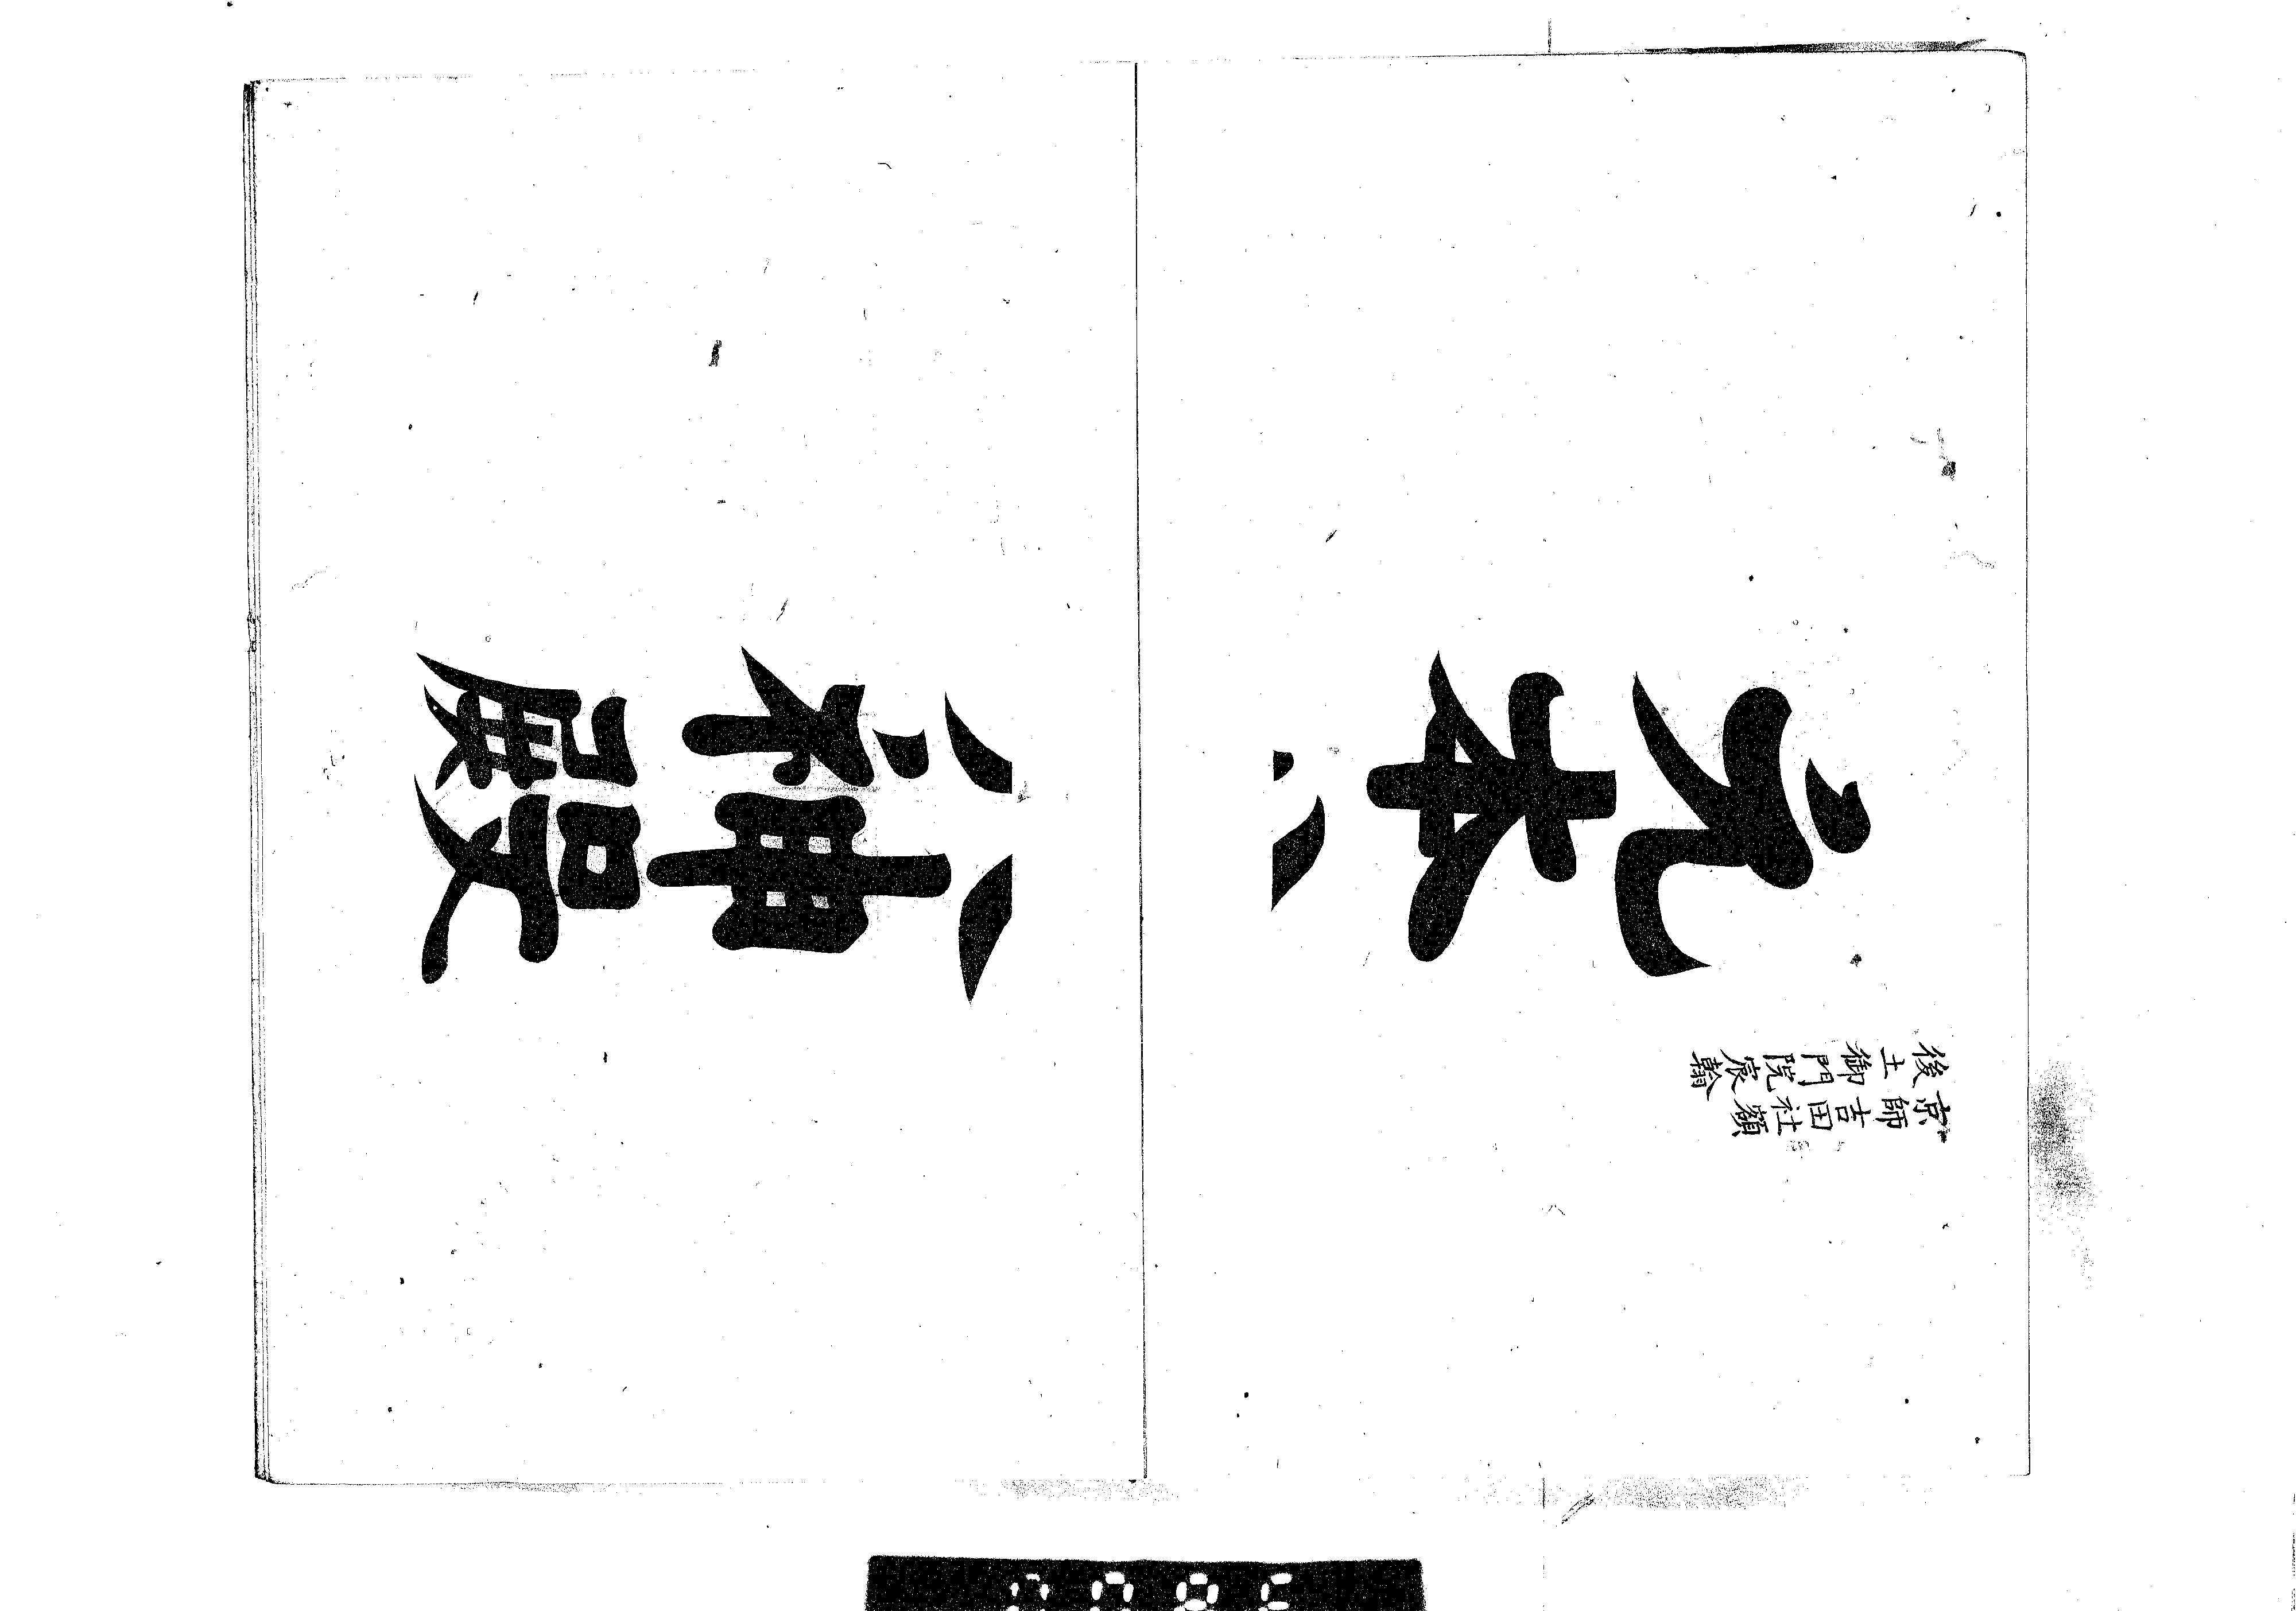 京師吉田社額
後土御門院宸翰
元本八神殿